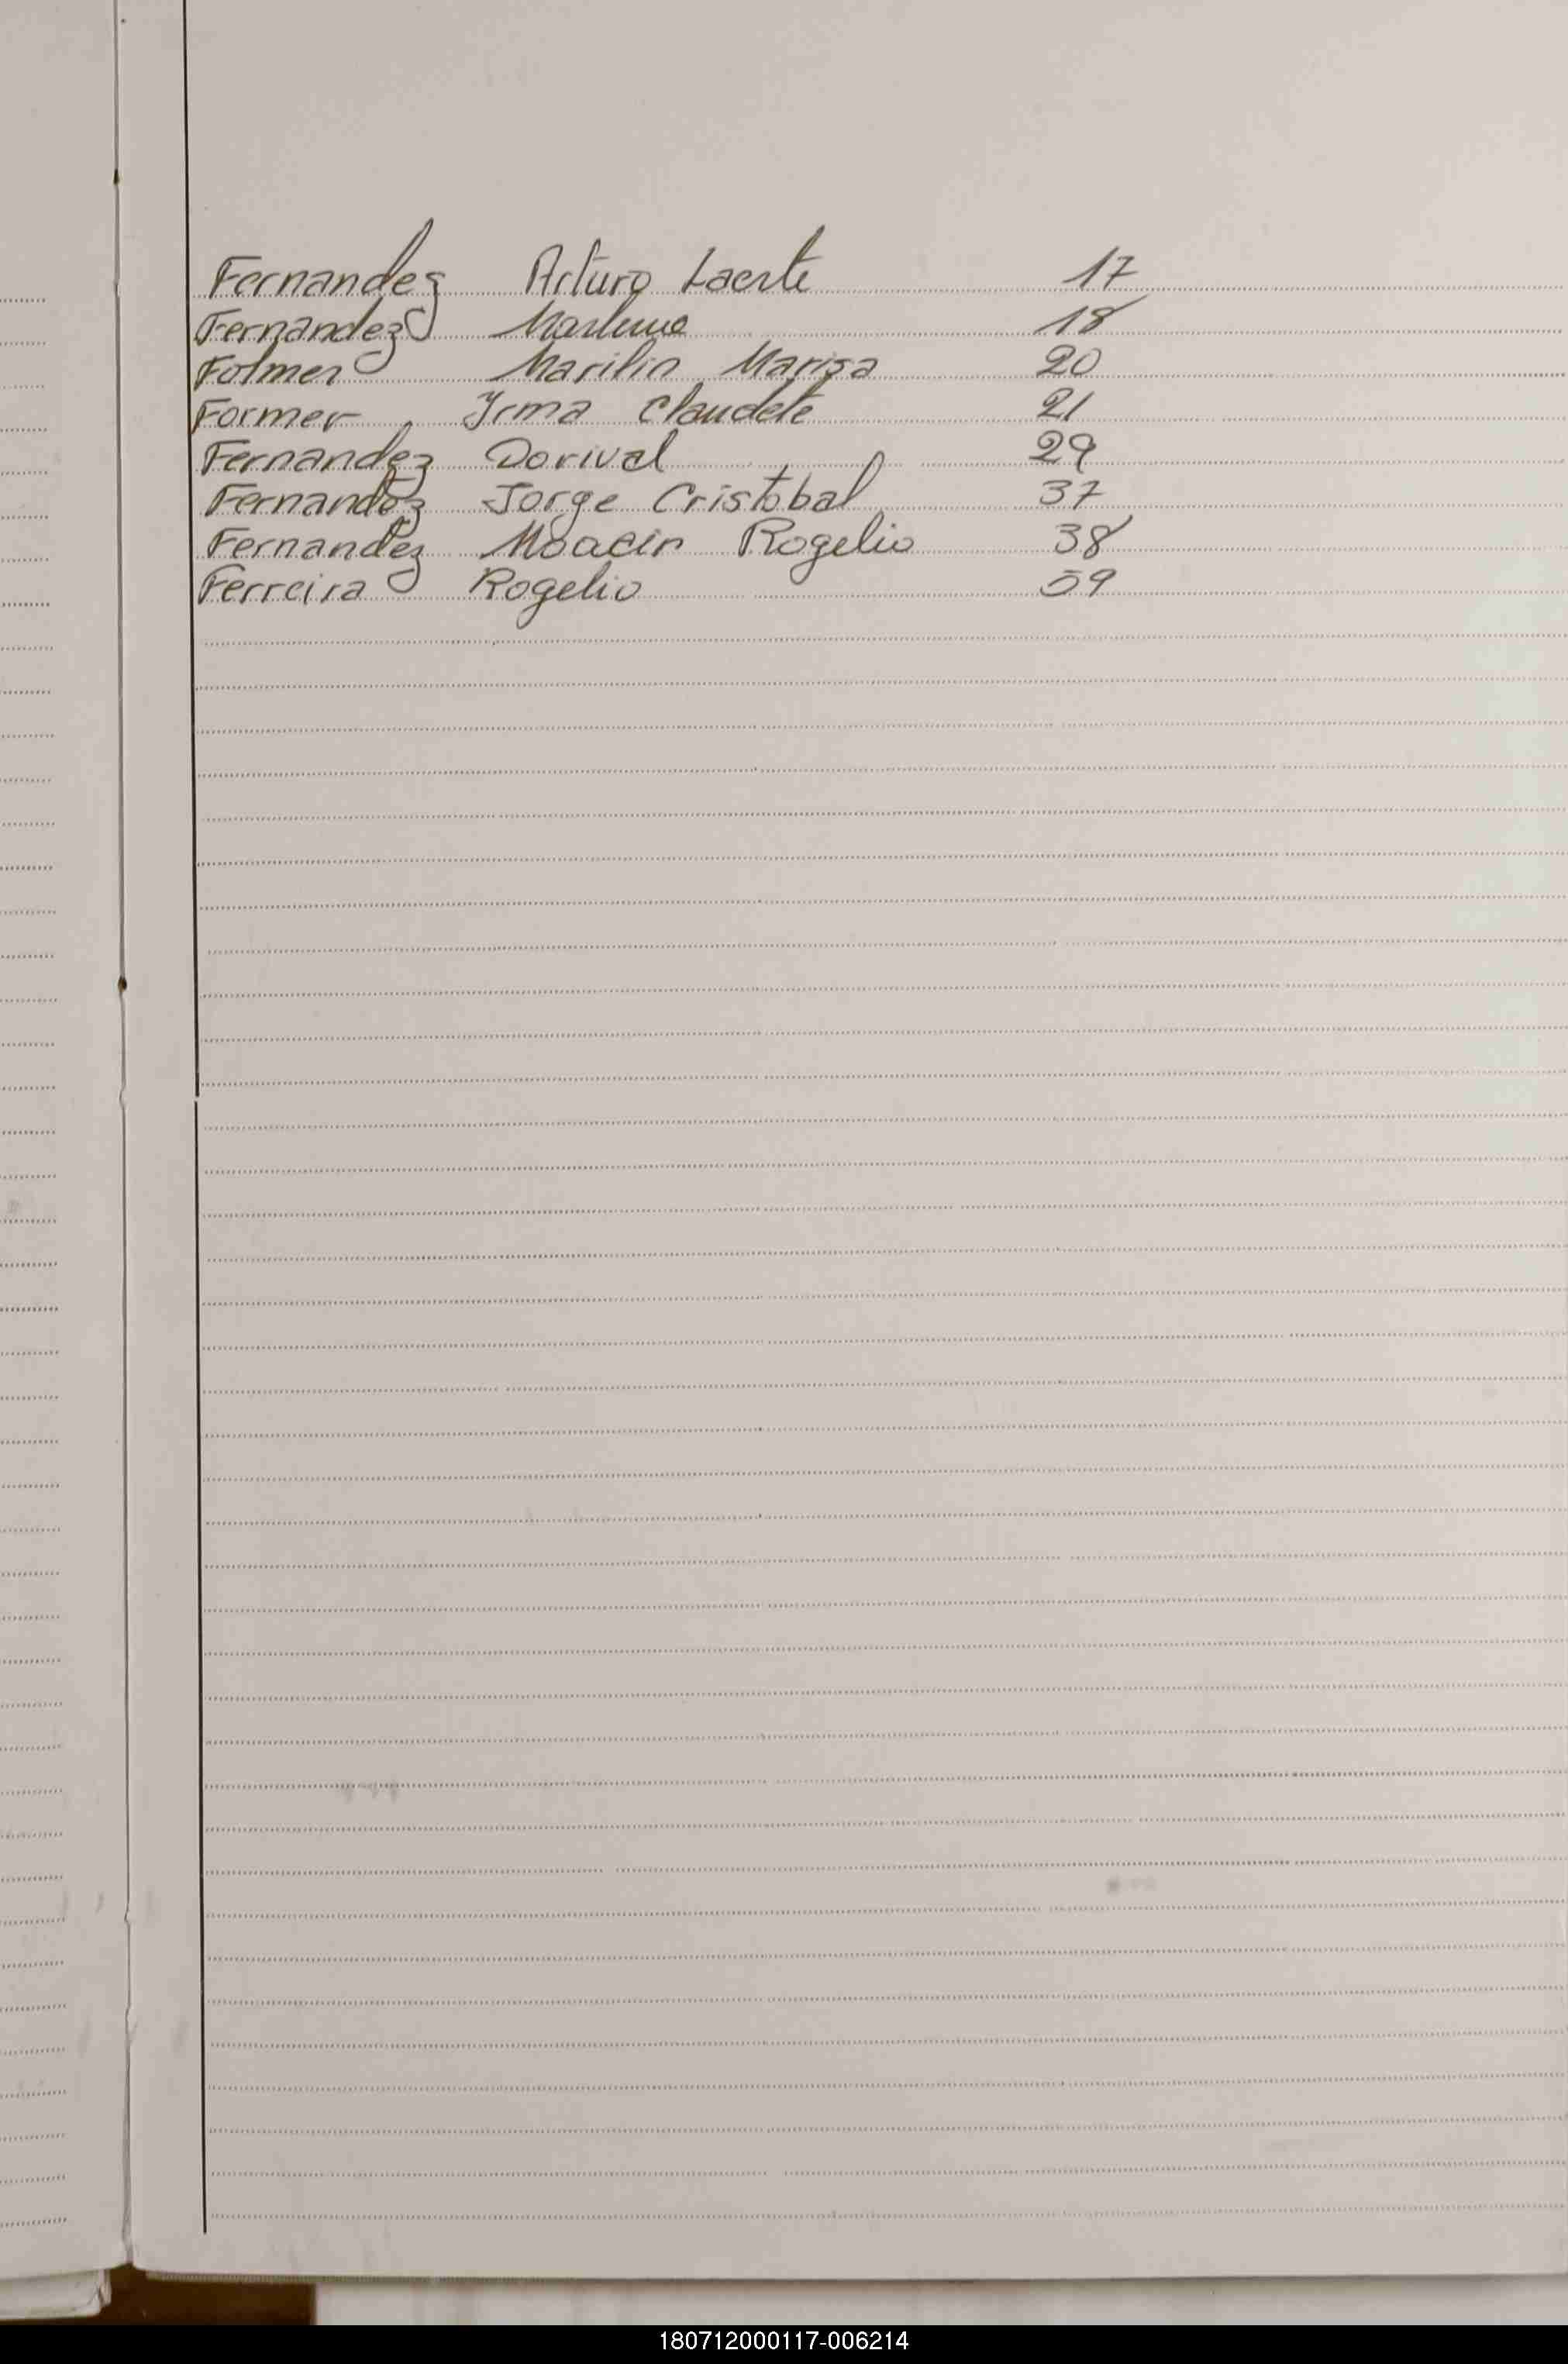 Fernandez Arturo Laerte 17
Fernandez Marlene 18
Folmer Marilin Marisa 20
Former Yrma Claudete 21
Fernandez Dorival 29
Fernandez Jorge Cristobal 37
Fernandez Moacir Rogelio 38
Ferreira Rogelio 59
180712000117-006214